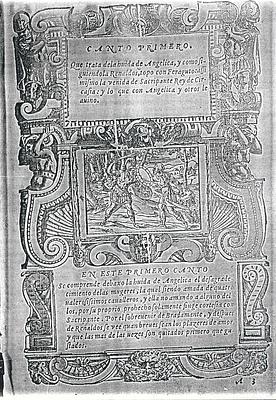 CANTO PRIMERO.
Que trata de la huida de Angelica, y como si-
guiendola Renaldos, topo con Feraguto: assi
mismo la venida de Sacripante Rey de Cir-
casia: y lo que con Angelica y otros le
auino.
EN ESTE PRIMERO CANTO
Se comprende debaxo la huida de Angelica el desagrade
cimiento delas mugeres, la qual siendo amada de quatro
valerosissimos caualleros, y ella no amando a alguno del
los, por su proprio prouecho solamente finge cortesia con
Sacripante. Por el sobreuenir de Bradamante, y despues
de Renaldos se vee quan breues sean los plazeres de amor
y que las mas de las vezes son quitados primero que gu
stados.
A 3